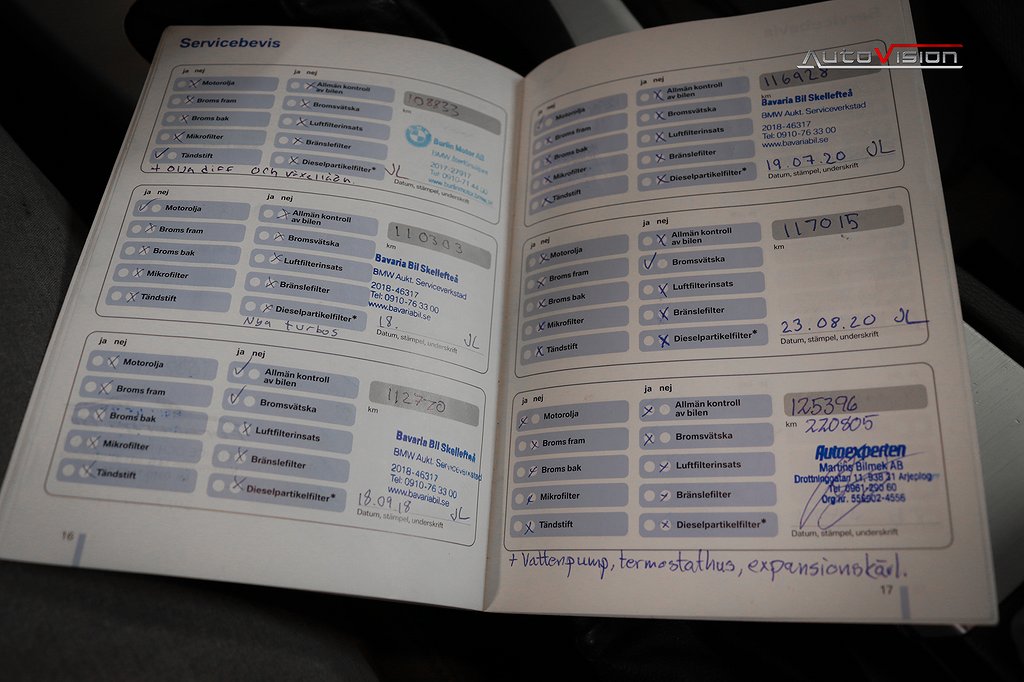 Servicebevis
ja nej
ja nej
Motorolja
Broms fram
Broms bak
Mikrofilter
Tändstift
Allmän kontroll
av bilen
Bromsvätska
Luftfilterinsats
Bränslefilter
Dieselpartikelfilter*
108833
km
Burlin Motor AB
2017-27917
Tel 0910-71 44 00
JL
Datum, stämpel, underskrift
+ olja diff och växellåda.
ja nej
ja nej
Motorolja
Broms fram
Broms bak
Mikrofilter
Tändstift
Allmän kontroll
av bilen
Bromsvätska
Luftfilterinsats
Bränslefilter
Dieselpartikelfilter*
110303
km
Bavaria Bil Skellefteå
BMW Aukt. Serviceverkstad
2018-46317
Tel: 0910-76 33 00
www.bavariabil.se
18. JL
Datum, stämpel, underskrift
Nya turbos
ja nej
ja nej
Motorolja
Broms fram
Broms bak
Mikrofilter
Tändstift
Allmän kontroll
av bilen
Bromsvätska
Luftfilterinsats
Bränslefilter
Dieselpartikelfilter*
112770
km
Bavaria Bil Skellefteå
BMW Aukt. Serviceverkstad
2018-46317
Tel: 0910-76 33 00
www.bavariabil.se
18.09.18 JL
Datum, stämpel, underskrift
16
AutoVision
ja nej
ja nej
Motorolja
Broms fram
Broms bak
Mikrofilter
Tändstift
Allmän kontroll
av bilen
Bromsvätska
Luftfilterinsats
Bränslefilter
Dieselpartikelfilter*
116928
km
Bavaria Bil Skellefteå
BMW Aukt. Serviceverkstad
2018-46317
Tel: 0910-76 33 00
www.bavariabil.se
19.07.20 JL
Datum, stämpel, underskrift
ja nej
ja nej
Motorolja
Broms fram
Broms bak
Mikrofilter
Tändstift
Allmän kontroll
av bilen
Bromsvätska
Luftfilterinsats
Bränslefilter
Dieselpartikelfilter*
117015
km
23.08.20 JL
Datum, stämpel, underskrift
ja nej
ja nej
Motorolja
Broms fram
Broms bak
Mikrofilter
Tändstift
Allmän kontroll
av bilen
Bromsvätska
Luftfilterinsats
Bränslefilter
Dieselpartikelfilter*
125396
km 220805
Autoexperten
Martins Bilmek AB
Drottninggatan 11, 938 31 Arjeplog
Tel 0961-290 60
Org nr. 556902-4556
Datum, stämpel, underskrift
+ Vattenpump, termostathus, expansionskärl.
17